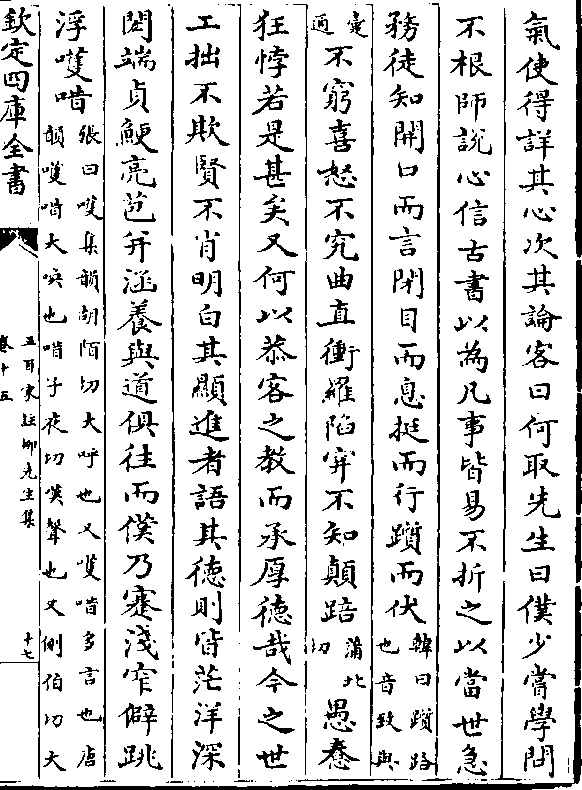 氣使得詳其心次其論客曰何取先生曰僕少嘗學問
不根師說心信古書以為凡事皆易不折之以當世急
務徒知開口而言閉目而息挺而行躓而伏韓曰躓路也音致與
疐通不窮喜怒不究曲直衝羅陷穽不知顛踣蒲北切愚蠢
狂悖若是甚矣又何以恭客之教而承厚德哉今之世
工拙不欺賢不肖明白其顯進者語其德則皆茫洋深
閎端貞鯁亮苞并涵養與道俱往而僕乃蹇淺窄僻跳
浮嚄唶張曰嚄集韻胡陌切大呼也又嚄唶多言也唐韻嚄唶大喚也唶子夜切嘆聲也又側伯切大
欽定四庫全書
五百家註柳先生集
卷十五
十七